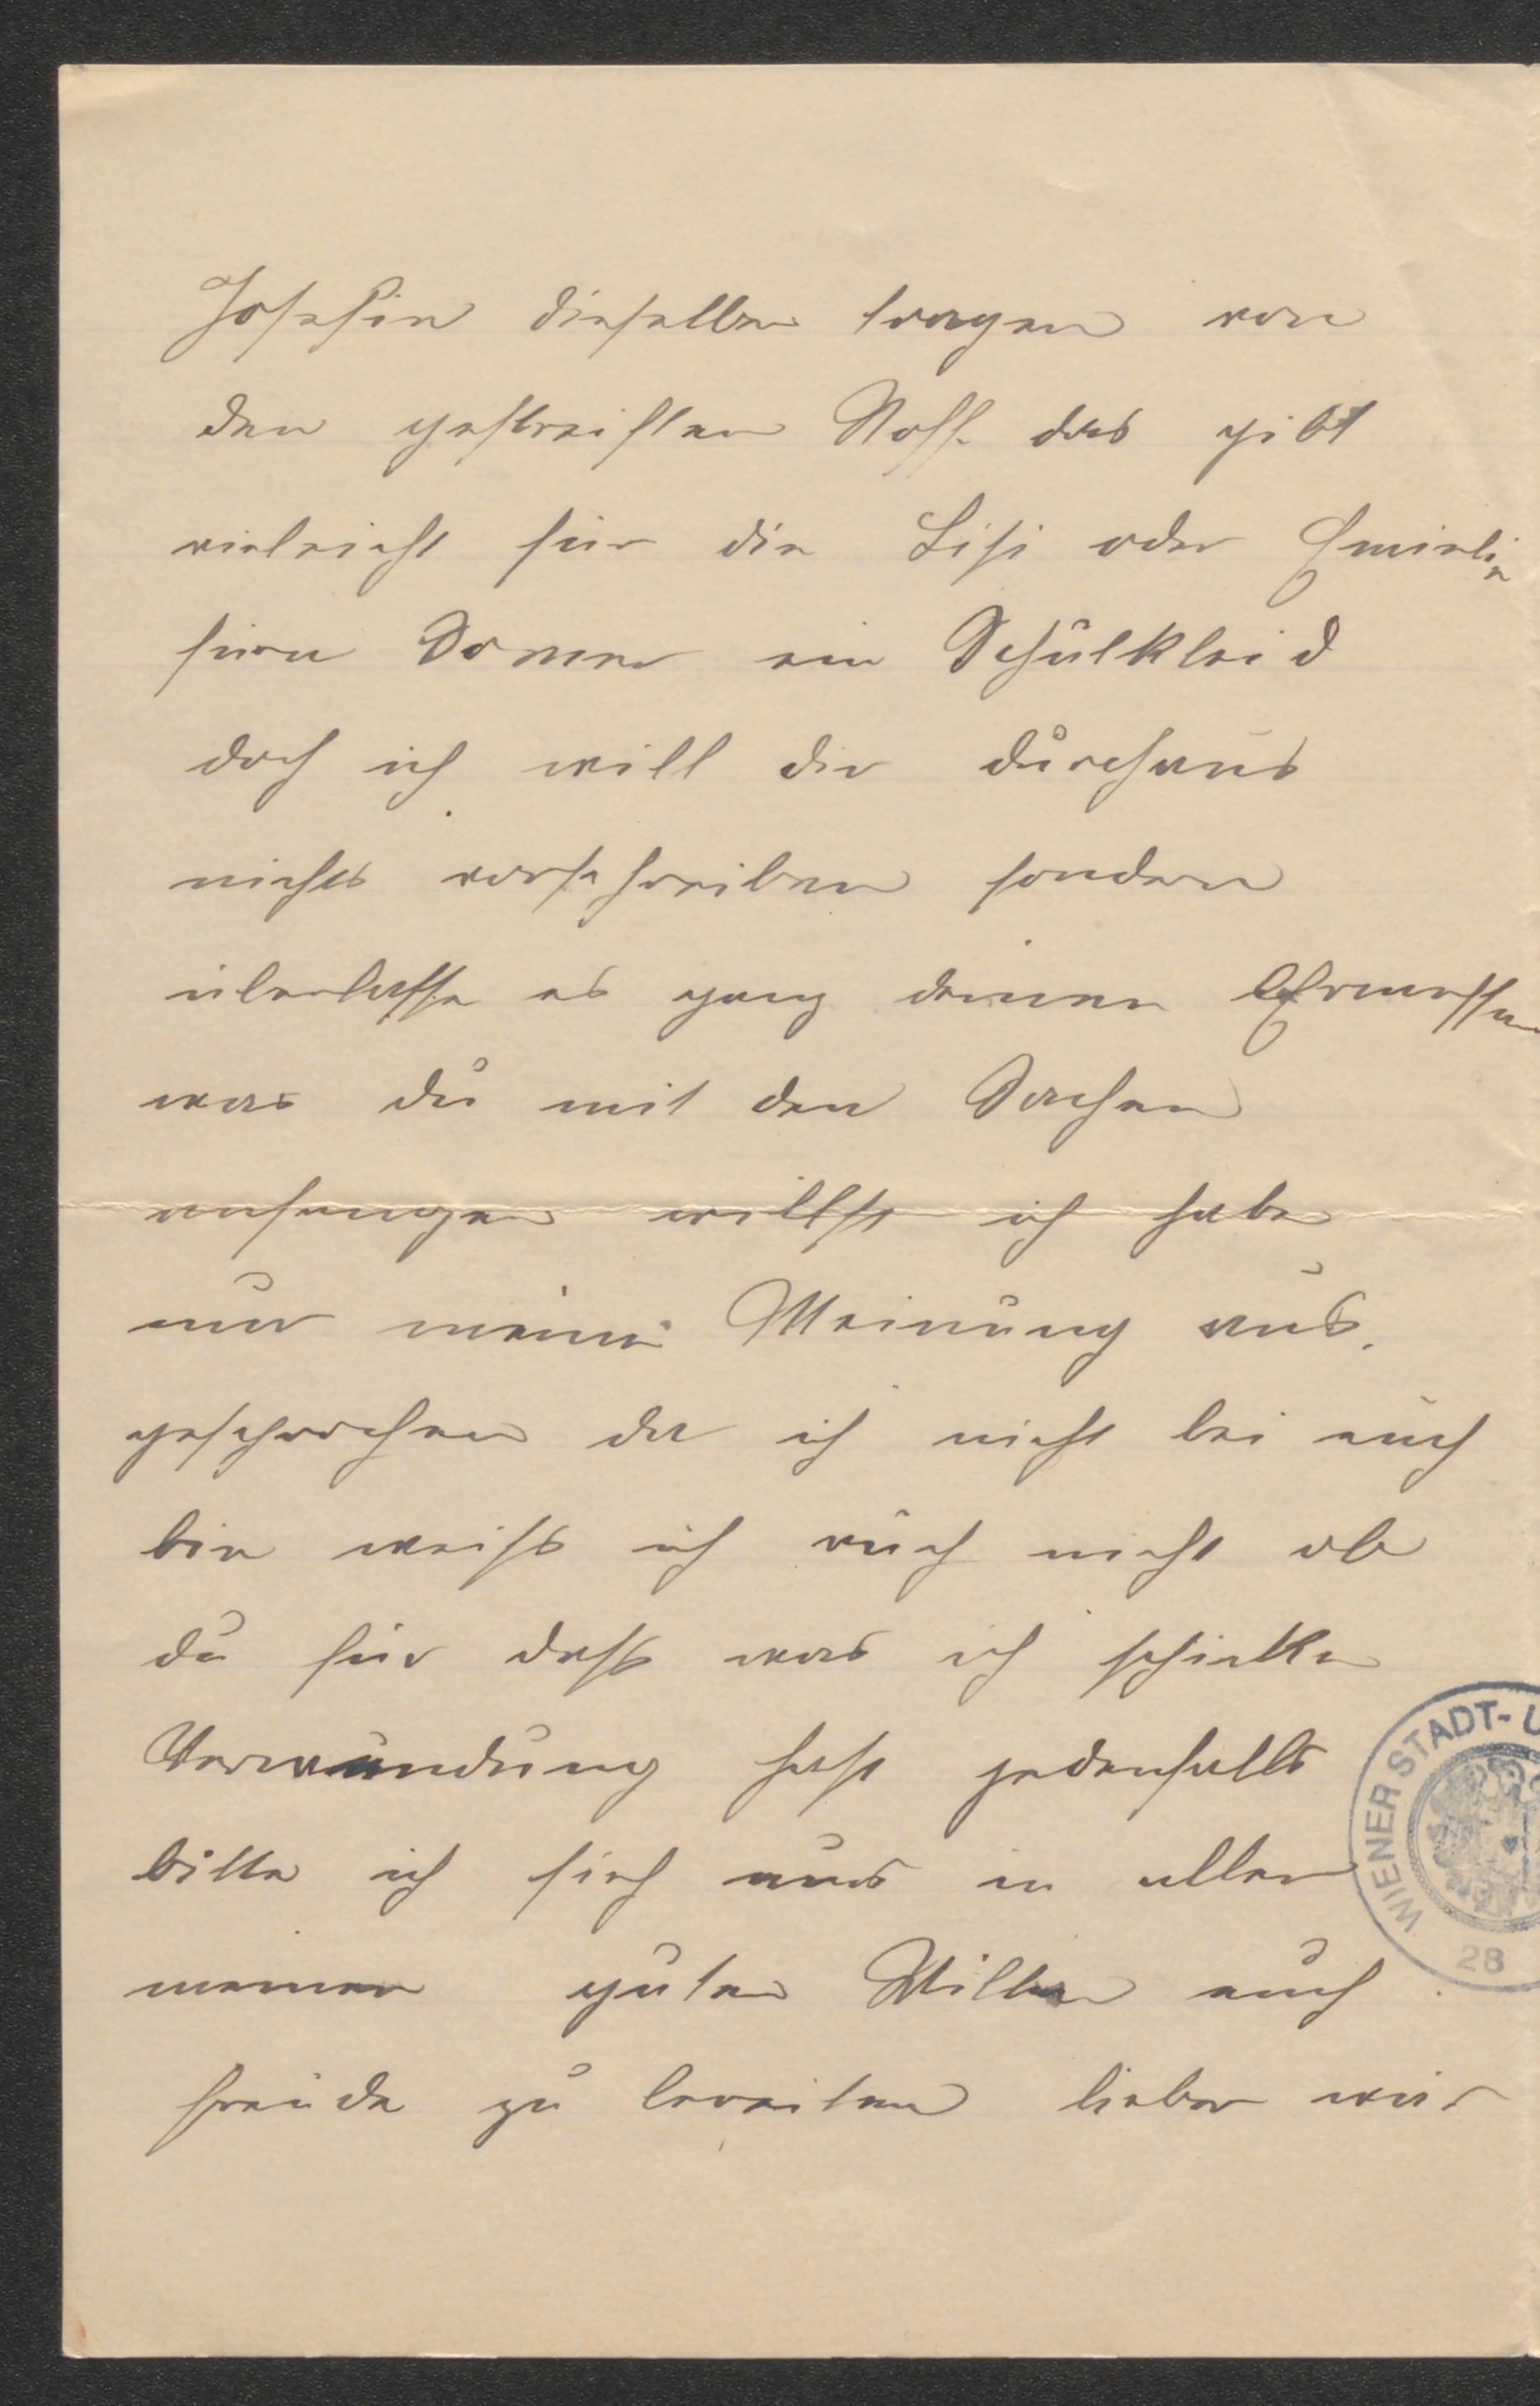 Josefin dieselben tragen von
den gestreiften Stoff das gibt
vieleicht für die Lisi oder Emielie
fürn Somer ein Schulkleid
doch ich will dir durchaus
nichts vorschreiben sondern
überlasse es ganz deinen Ermessen
was du mit den Sachen
anfangen willst ich habe
nur meine Meinung aus.
geschprochen da ich nicht bei euch
bin weiss ich auch nicht ob
du für dass was ich schicke
Verwendung hast jedenfalls
bitte ich sieh aus in allen
meinen guten Willen euch
freude zu bereiten lieber wär
WIENER STADT- U
28